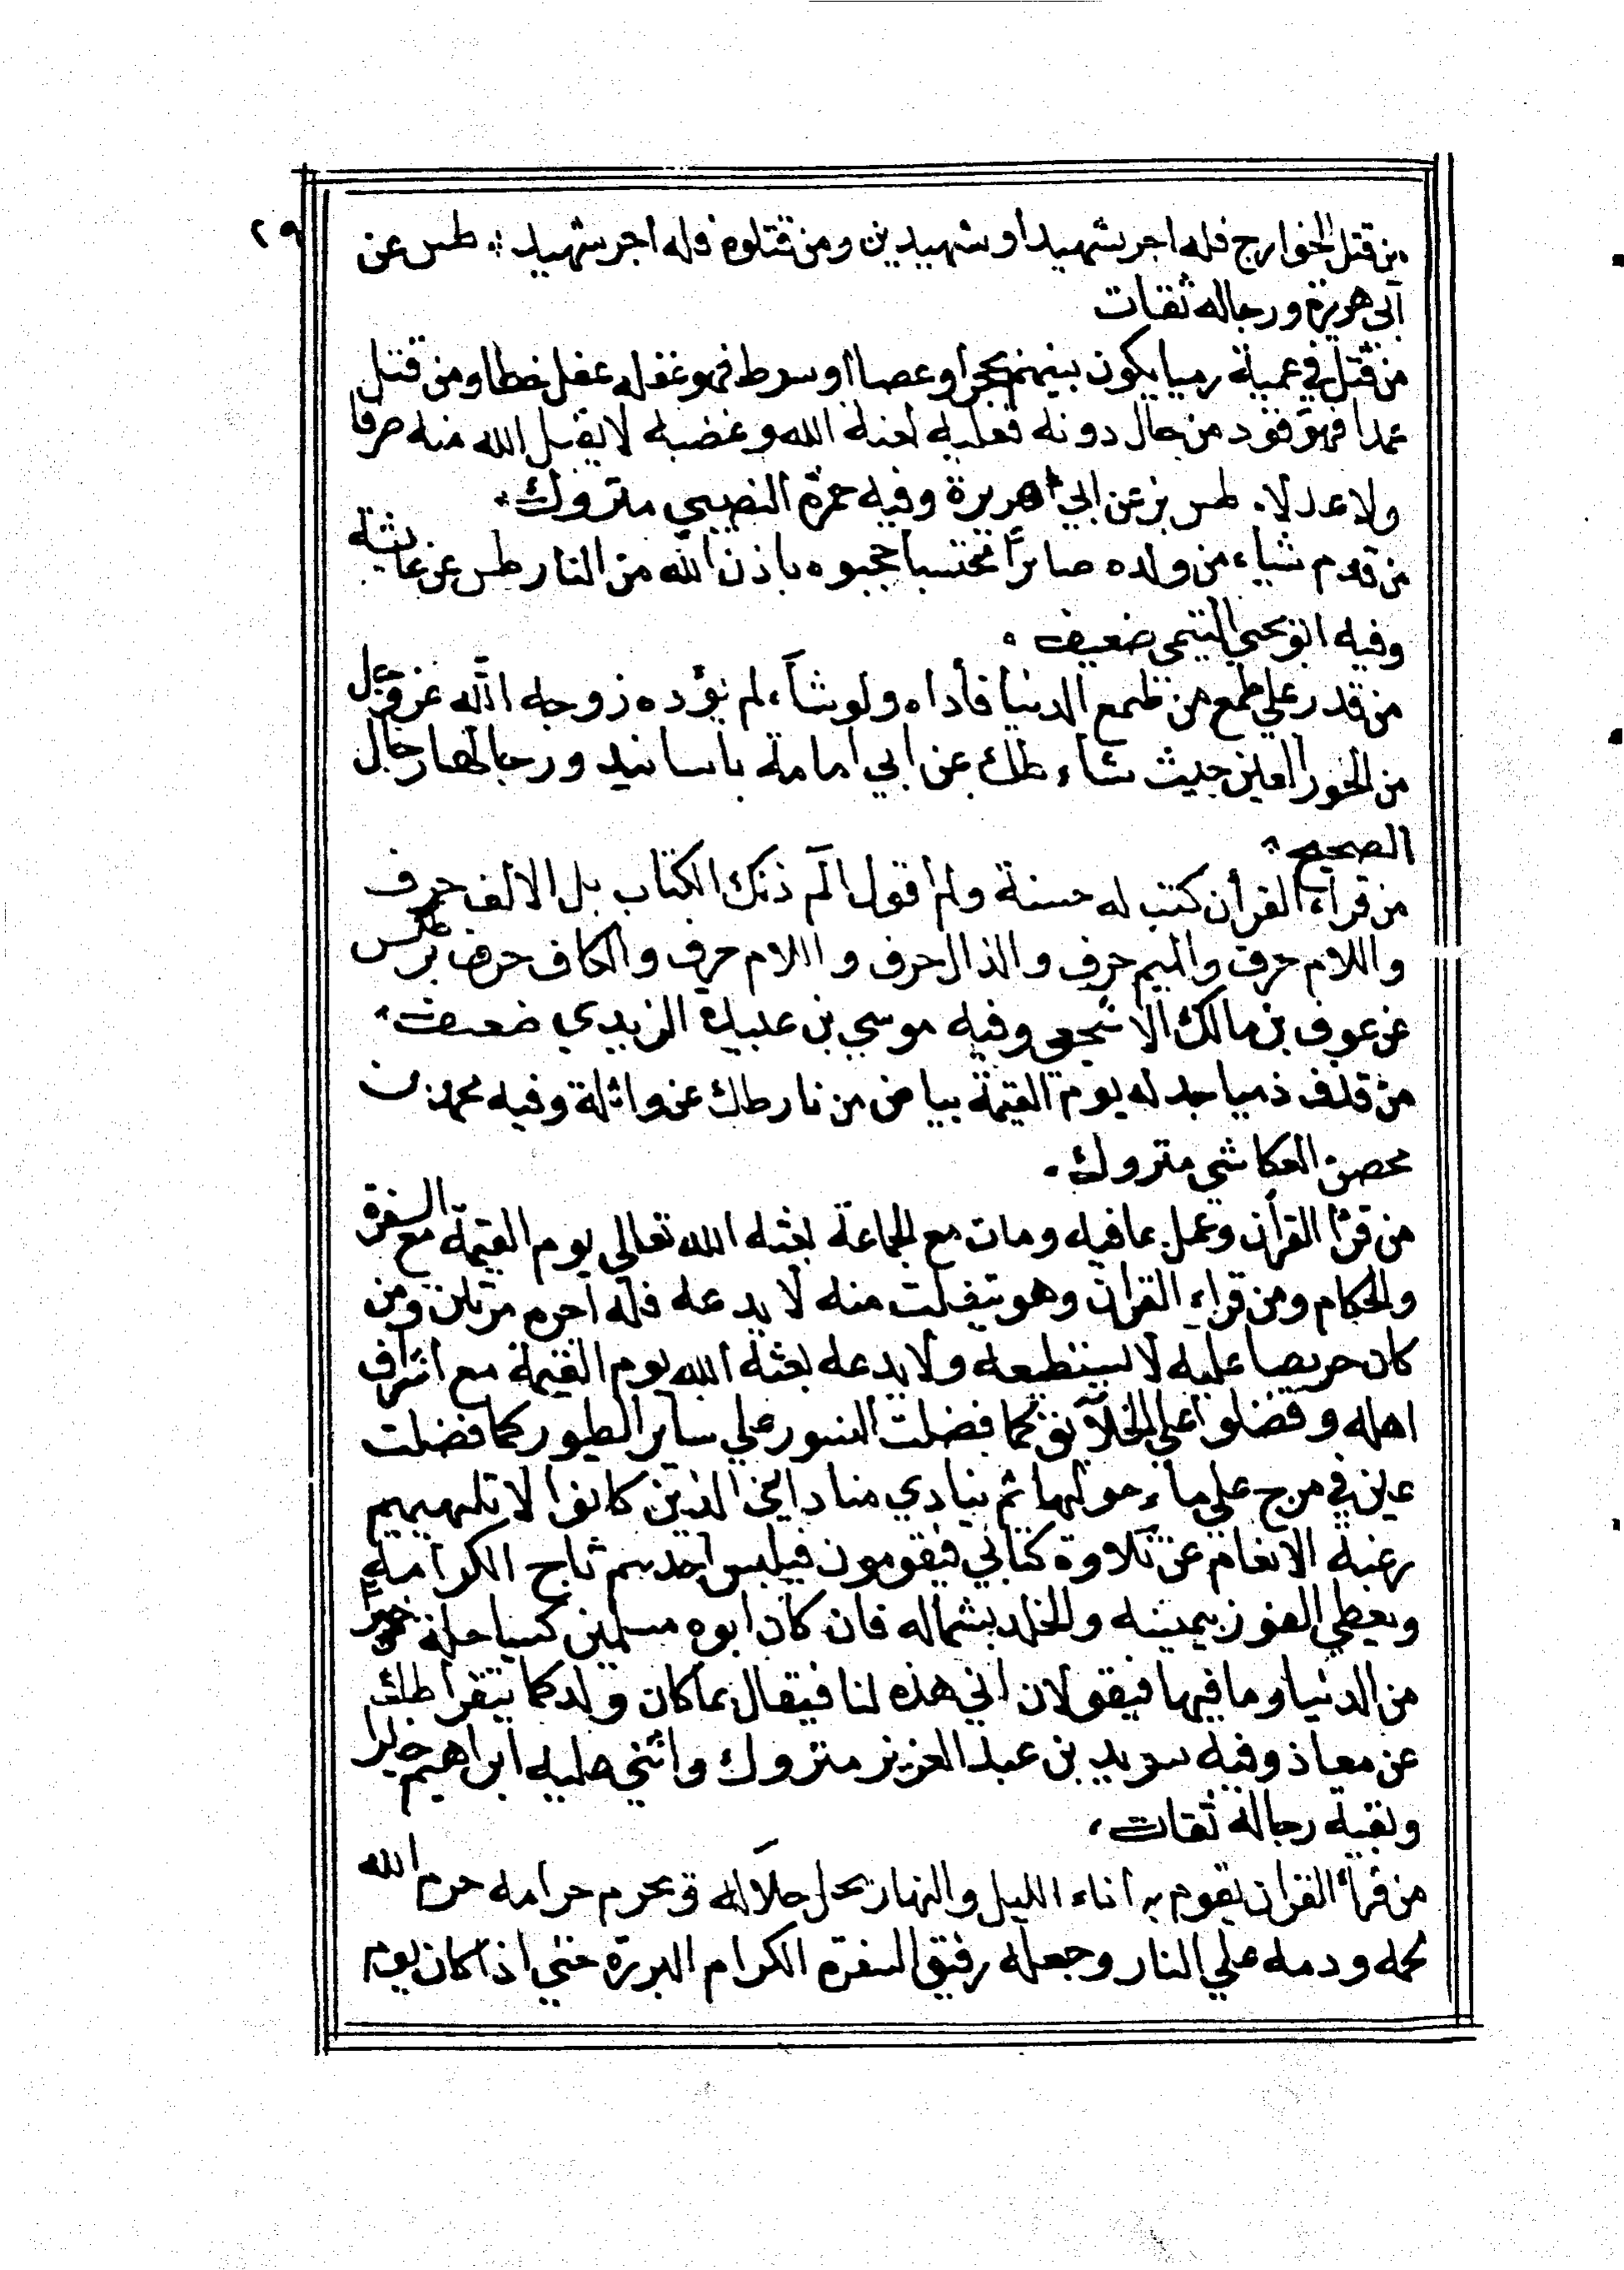 ٢٩
من قتل الخوارج فله اجر شهيد او شهيدين ومن قتلوه فله اجر شهيد طس عن
أبي هريرة ورجاله ثقات
من قتل في عمية رميا يكون بينهم بحجر او عصا او سوط فهو عقله عقل خطا ومن قتل
عمدا فهو قود من حال دونه فعليه لعنة الله وغضبه لا يقبل الله منه صرفا
ولا عدلا. طس بز عن ابي هريرة وفيه حمزة النصيبي متروك
من قدم شياء من ولده صابرًا محتسبا حجبوه باذن الله من النار طس عن عائشة
وفيه ابو يحيى التيمي ضعيف
من قدر علي طمع من طمع الدنيا فأداه ولو شآء لم يؤده زوجه الله عز وجل
من الحور العين حيث شاء طك عن ابي امامة باسانيد ورجالها رجال
الصحيح
من قرأ القرأن كتب له حسنة ولم اقول الم ذلك الكتاب بل الالف حرف
واللام حرف والميم حرف والذال حرف واللام حرف والكاف حرف بز طكس
عن عوف بن مالك الاشجعي وفيه موسي بن عبيدة الزبيدي ضعيف
من قذف ذميا جد له يوم القيمة بياض من نار طك عن واثلة وفيه محمد بن
محصن العكاشي متروك
من قرأ القرأن وعمل بما فيه ومات مع الجماعة بعثه الله تعالي يوم القيمة مع السفرة
والحكام ومن قراء القران وهو يتفلت منه لا يدعه فله اجره مرتين ومن
كان حريصا عليه لا يستطيعه ولا يدعه بعثه الله يوم القيمة مع اشراف
اهله وفضلوا علي الخلآئق كما فضلت النسور علي ساير الطيور كما فضلت
عين في مرج علي ماء حولها ثم ينادي مناد اين الذين كانوا لا تلهيهم
رعية الانعام عن تلاوة كتابي فيقومون فيلبس احدهم تاج الكرامة
ويعطي الفوز بيمينه والخلد بشماله فان كان ابوه مسلمين كسيا حلة خير
من الدنيا وما فيها فيقولان اني هذه لنا فيقال بما كان ولدكما يتقرأ طك
عن معاذ وفيه سويد بن عبد العزيز متروك واثني عليه ابراهيم خيرا
وبقية رجاله ثقات
من قرأ القران يقوم به آناء الليل والنهار يحل حلاله و يحرم حرامه حرم الله
لحمه ودمه علي النار وجعله رفيق السفرة الكرام البررة حتى اذا كان يوم